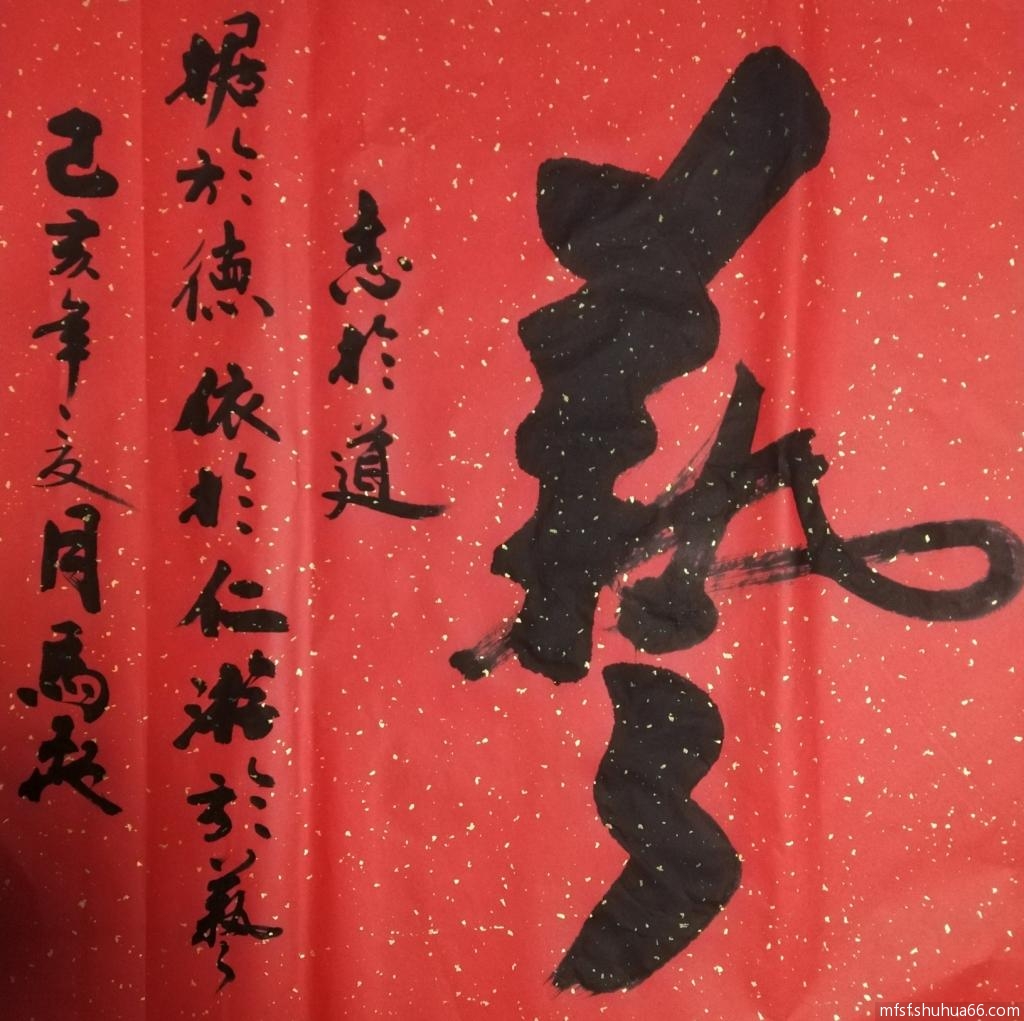 藝
志於道
據於德依於仁游於藝
己亥年之夏月馬起
mfsfshuhua66.com